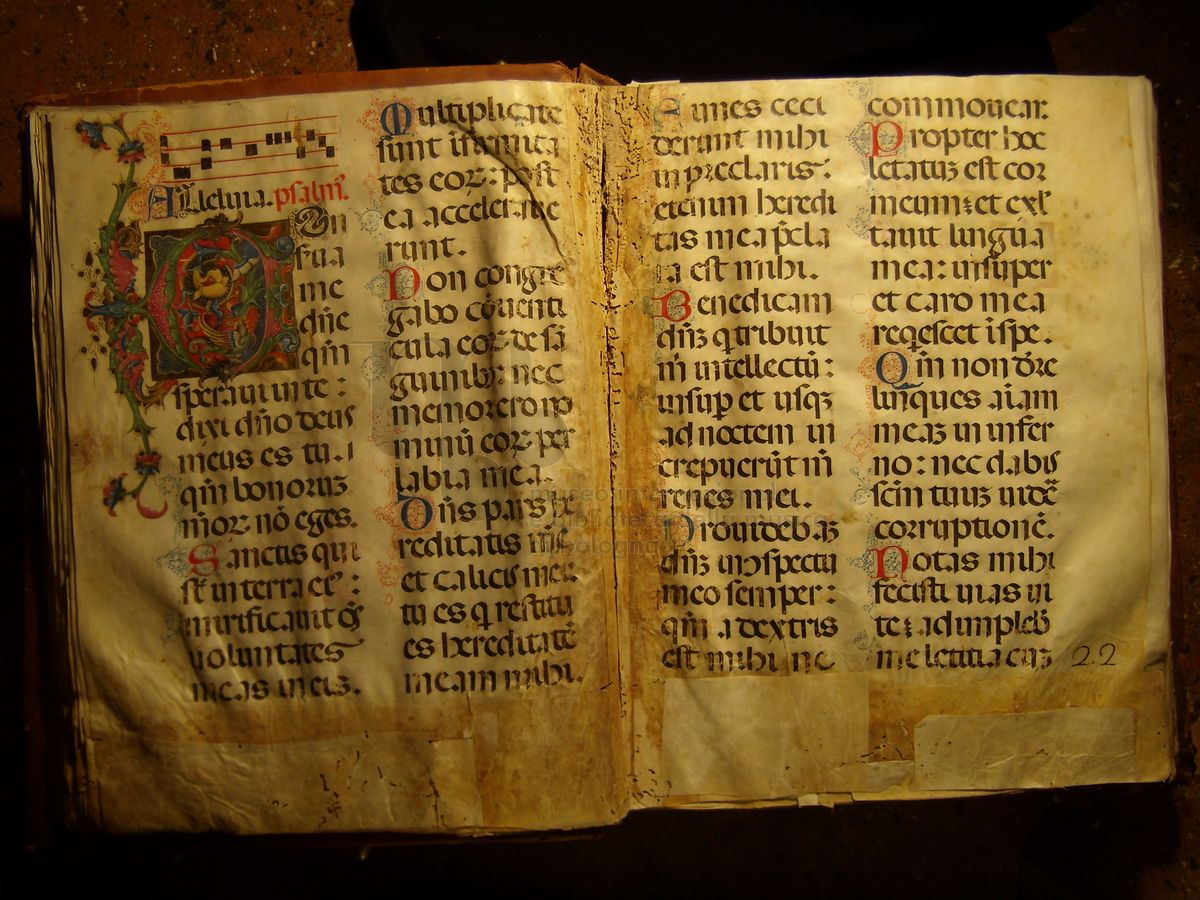 Alleluia. psalm̄.
Con
serua
me
dñe
qm̄
speraui in te :
dixi dño deus
meus es tu. i
qm̄ bonoruꝫ
m̄oꝝ nō eges.
Sanctis qui
st̄ in terra ei :
mirificauit oēs
uoluntates
meas in eis.
Multiplicate
sunt infirmita
tes eoꝝ : post
ea acceleraue
runt.
Non congre
gabo cōuenti
cula eoꝝ de sā
guinibꝫ : nec
memor ero no
minū eoꝝ per
labia mea.
Dn̄s pars he
reditatis mee
et calicis mei :
tu es q restitu
es hereditatē
meam mihi.
Funes ceci
derunt mihi
in preclaris :
etenim heredi
tas mea p̄cla
ra est mihi.
Benedicam
dñꝫ q tribuit
m̄ intellectū :
insuꝑ et usqꝫ
ad noctem in
crepuerūt m̄
renes mei.
Prouidebaꝫ
dñꝫ in ↄspectu
meo semper :
qm̄ a dextris
est mihi ne
commouear.
Propter hoc
letatuꝫ est cor
meum : et exl̄
tauit lingua
mea : insuper
et caro mea
reqescet ī spe.
Qm̄ non dr̄e
linques aīam
meaꝫ in infer
no : nec dabis
scm̄ tuuꝫ uidē
corruptionē.
Notas mihi
fecisti uias ui
te : adimpleb̄
me letitia cuꝫ
22